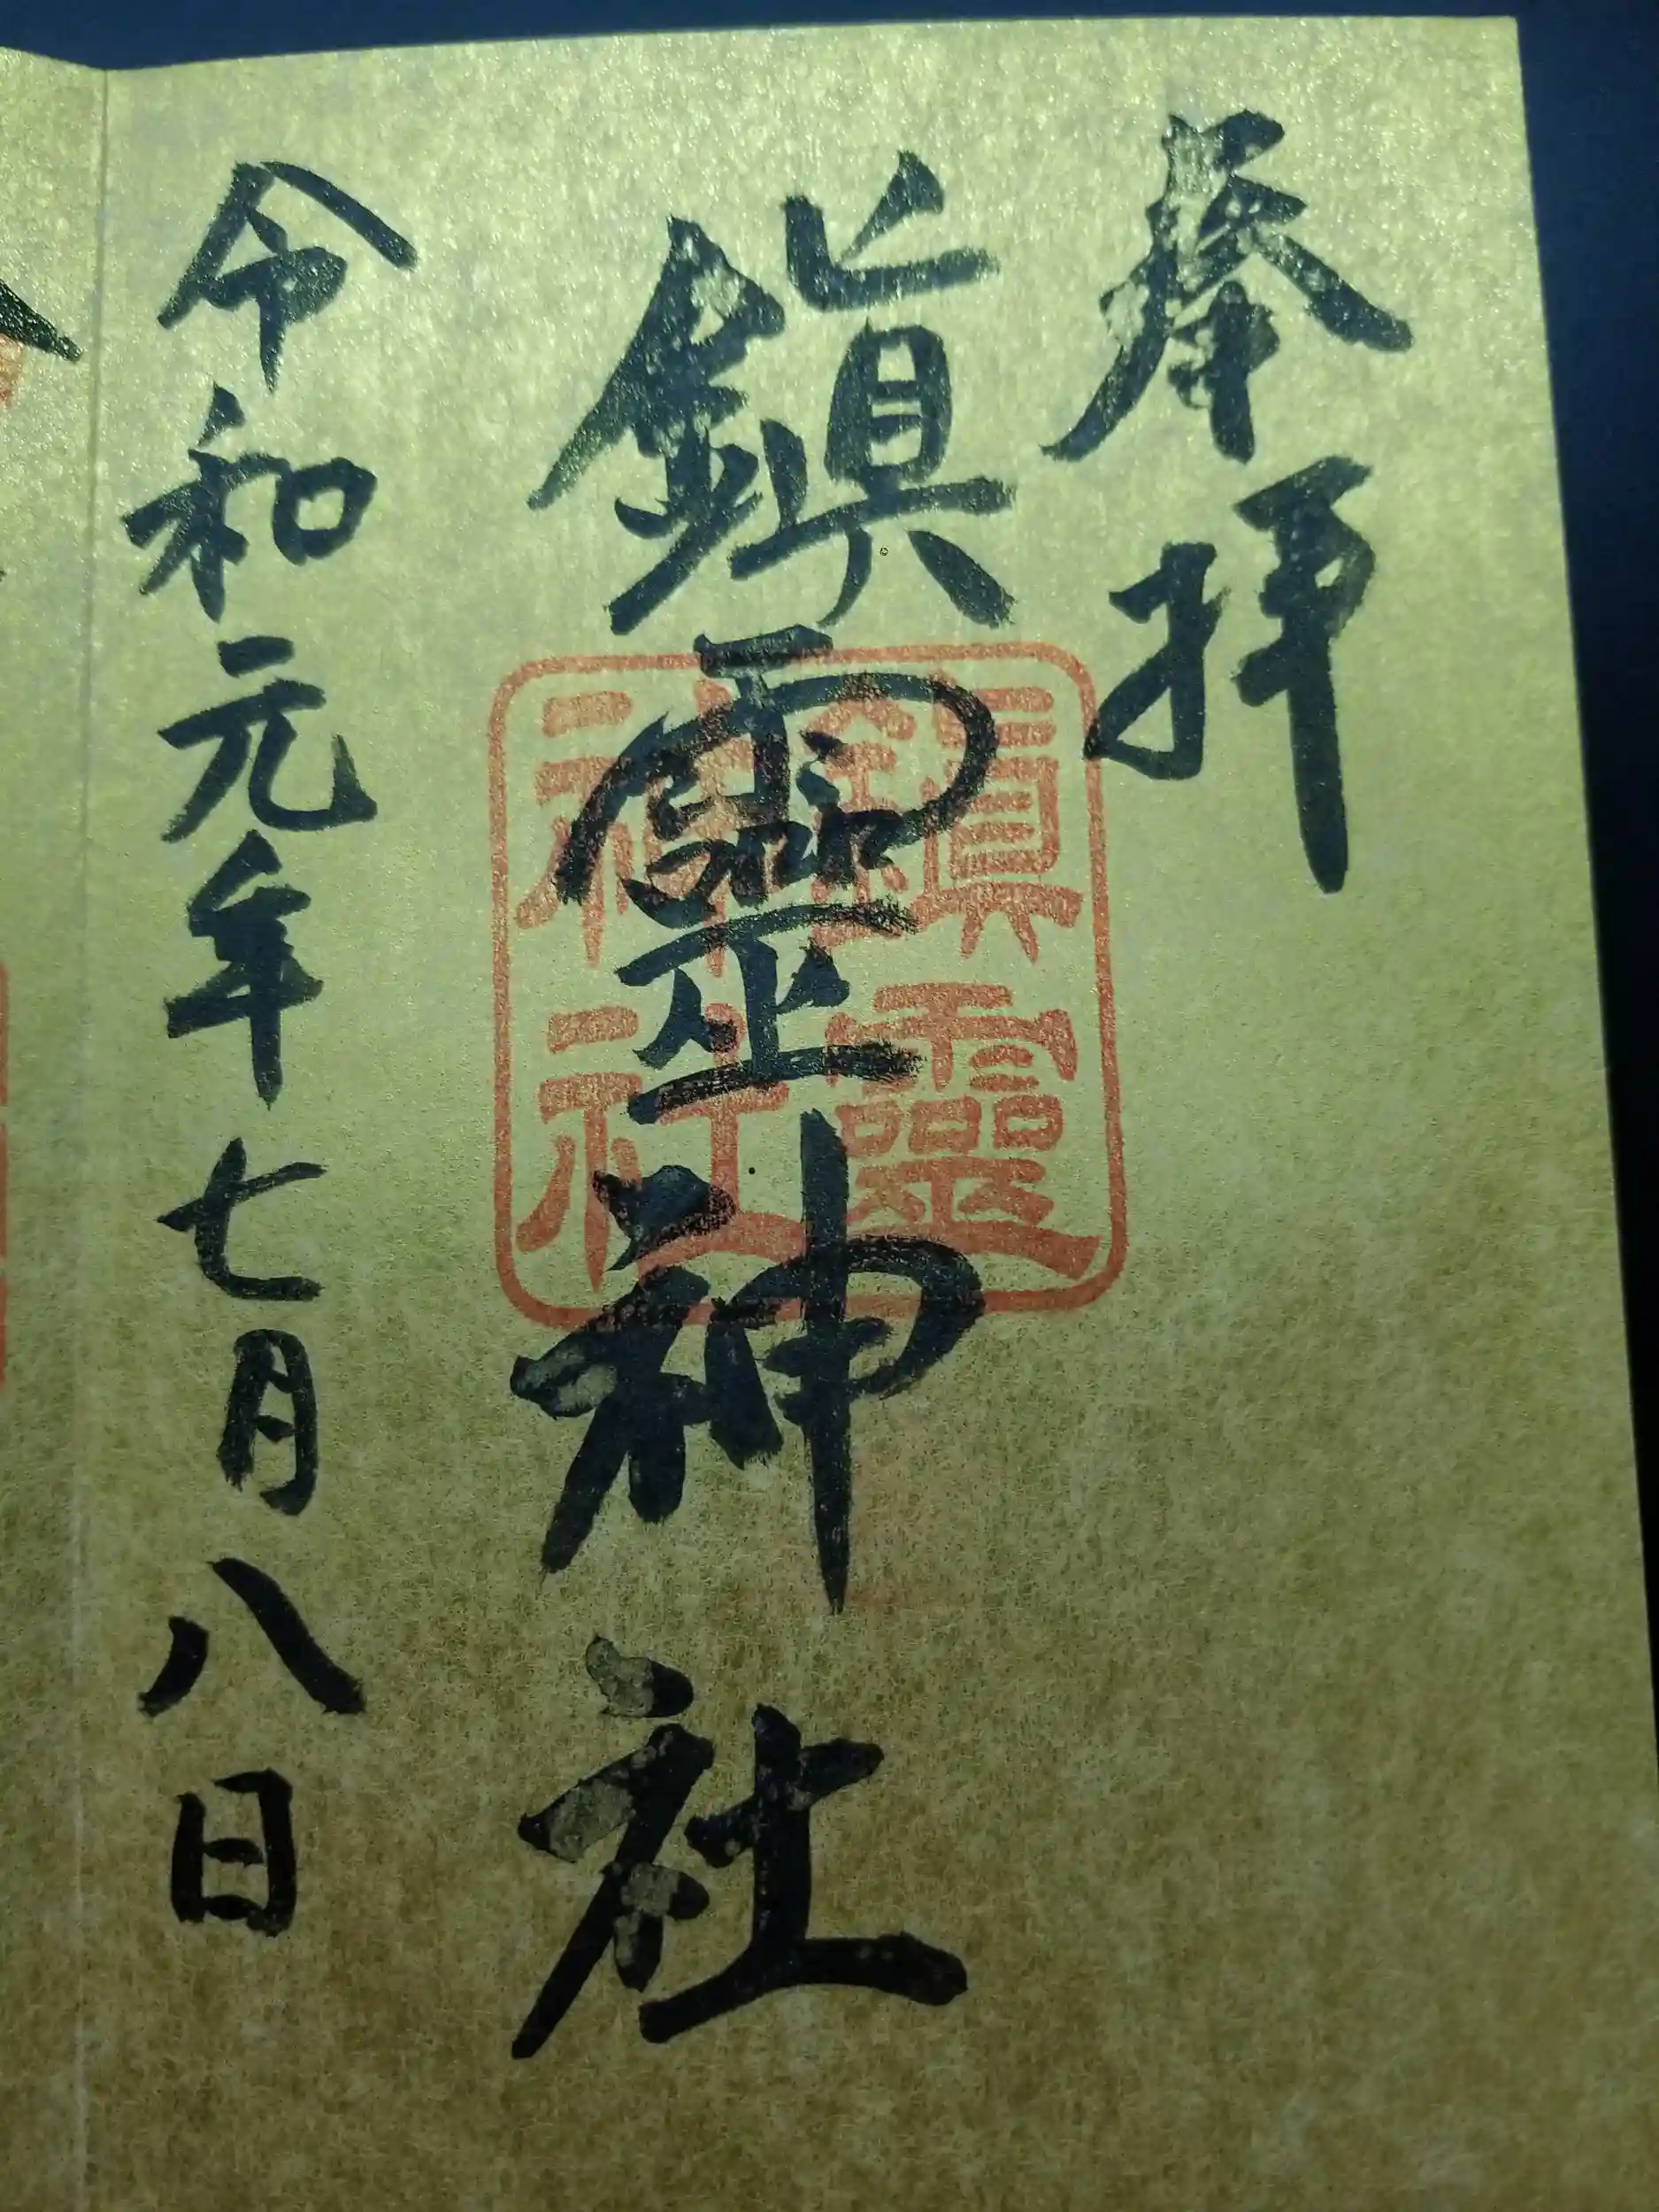 奉拝
鎮靈神社
鎮靈
神社
令和元年七月八日